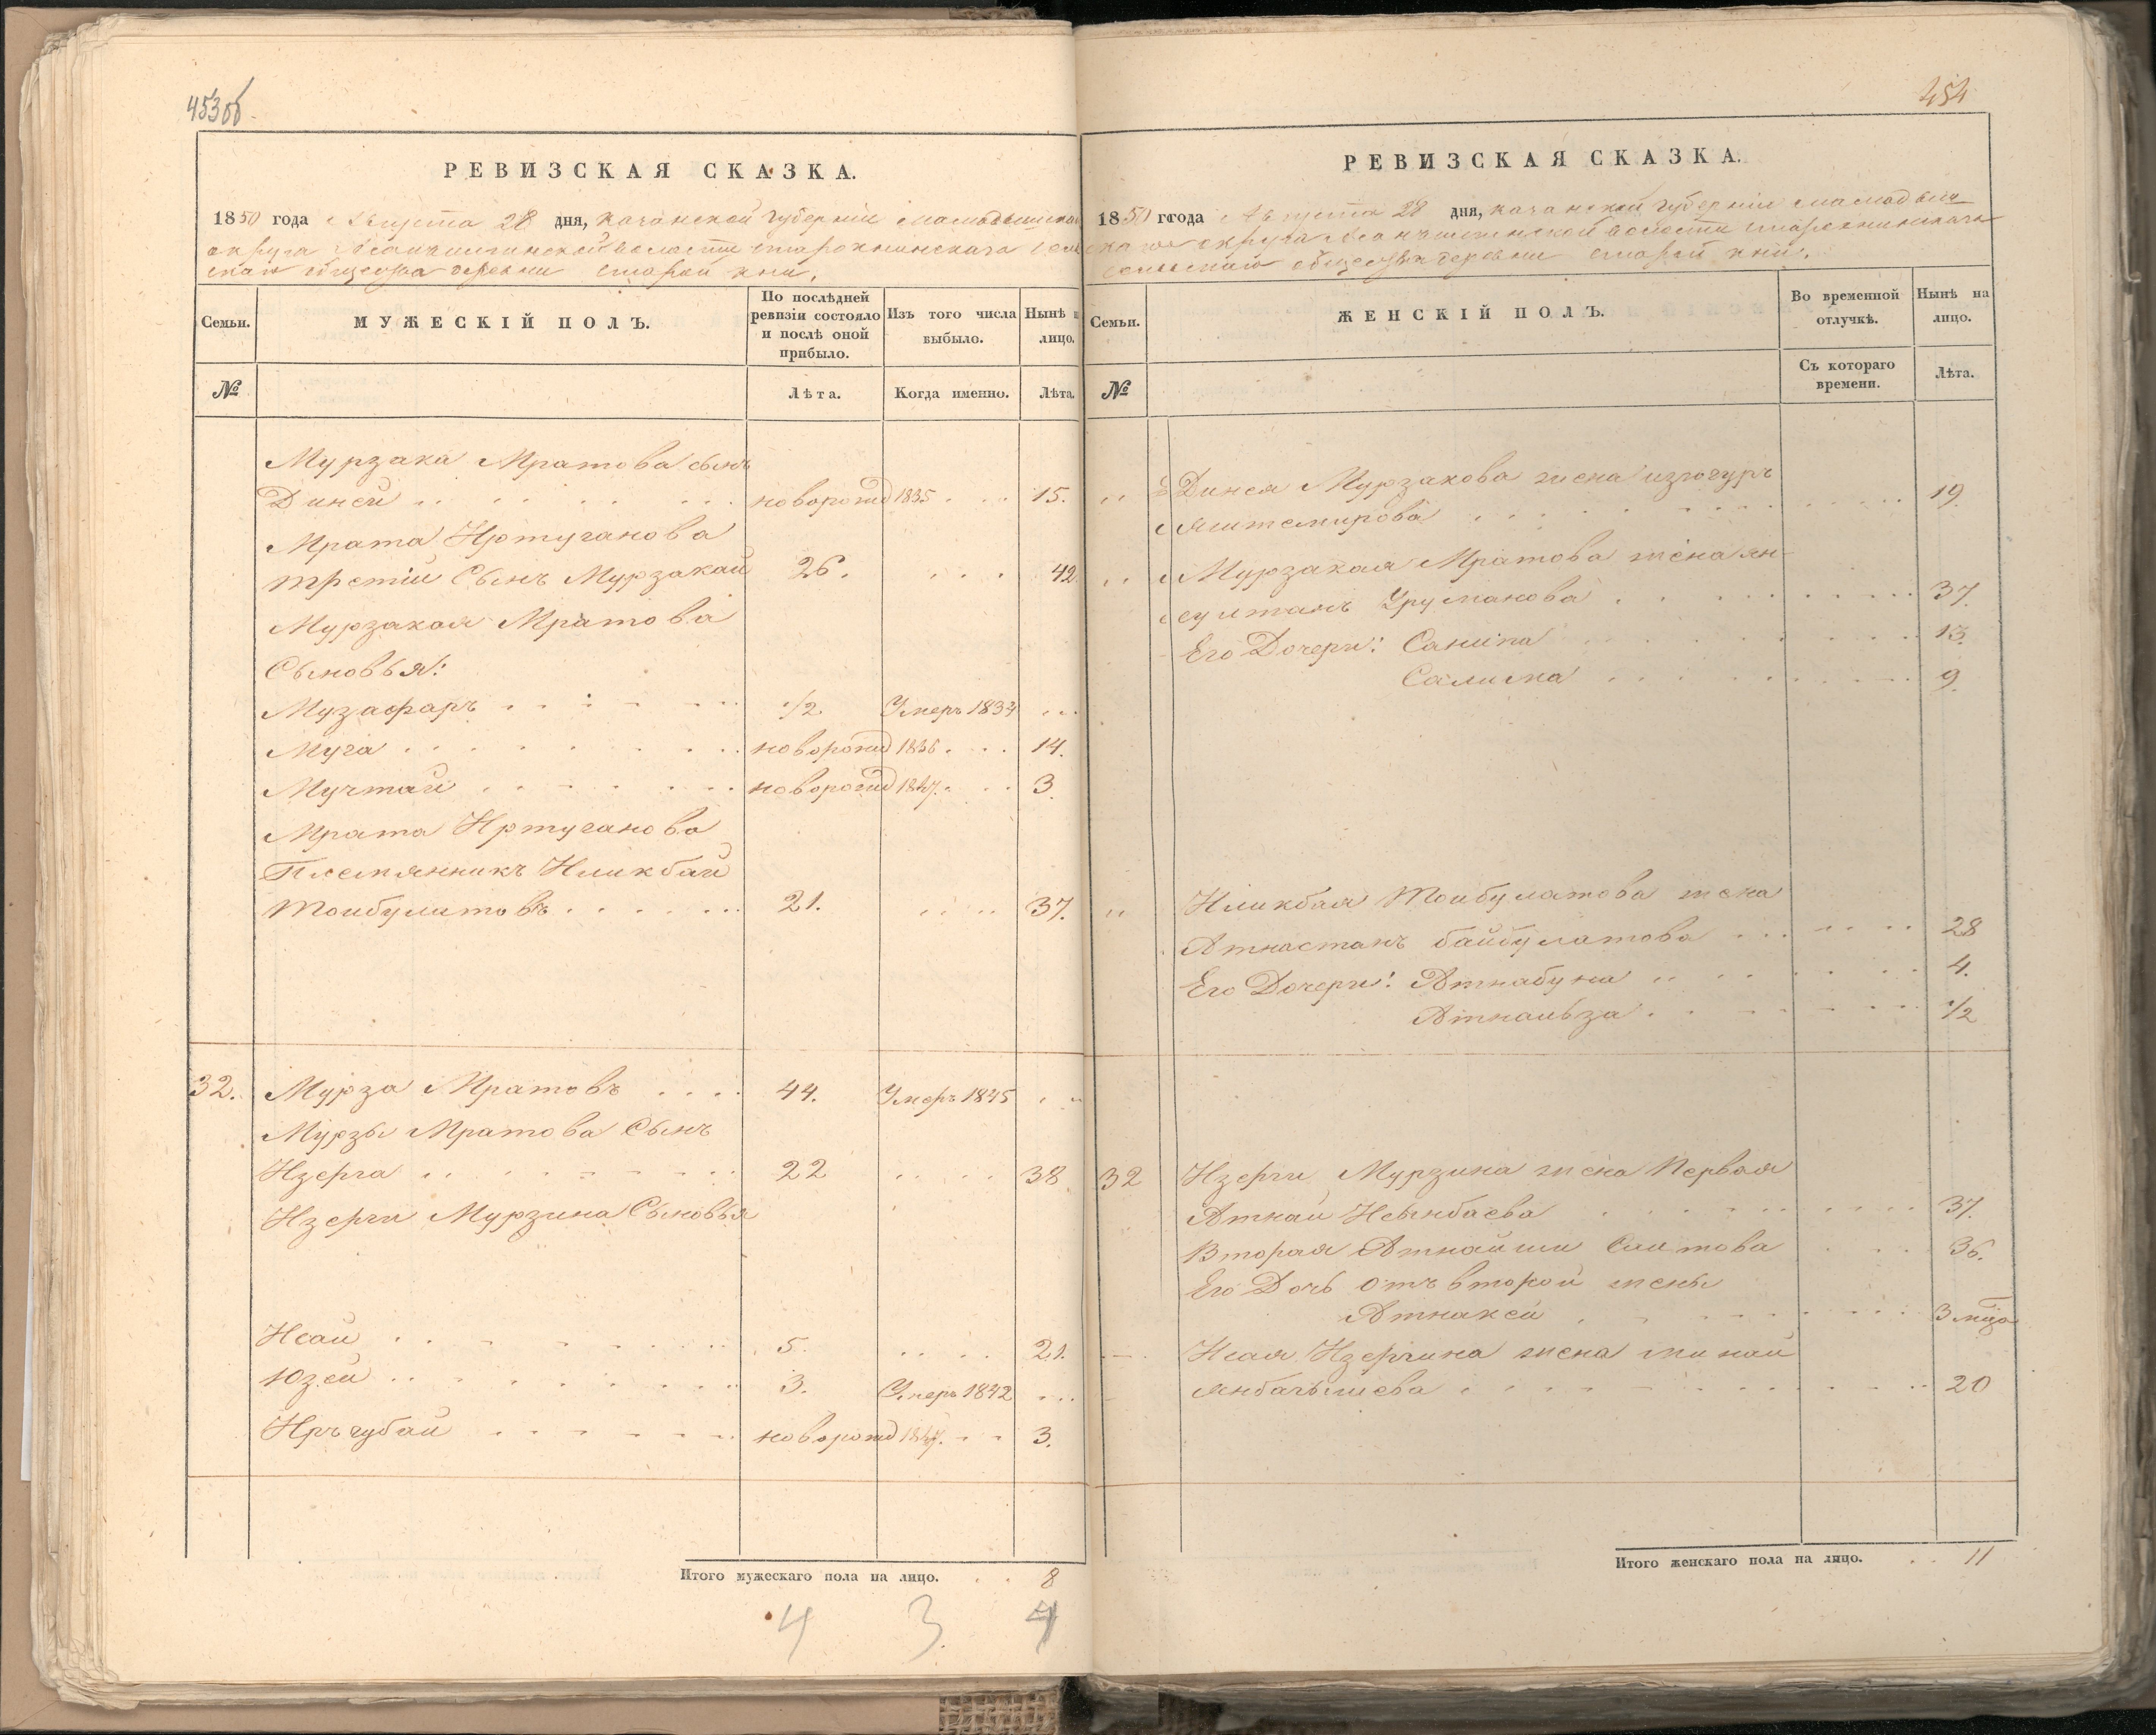 453об
РЕВИЗСКАЯ СКАЗКА.
1850 года Августа 28 дня, казанской губерніи мамадышскаго
округа волости старокнинскаго сель
скаго общества деревни старой кни.
Семьи.
МУЖЕСКІЙ ПОЛЪ.
По послѣдней ревизіи состояло и послѣ оной прибыло.
Изъ того числа выбыло.
Нынѣ н лицо.
№
Лѣта.
Когда именно.
Лѣта.
Мурзака Мратова сынъ
Диней новорожд 1835 15.
Мрата Иртуганова
третій Сынъ Мурзакай 26. 42
Мурзакая Мратова
Сыновья:
Музафаръ 1/2 Умеръ 1834
Муга новорожд 1836 14.
Мучтай новорожд 1847. 3.
Мрата Иртуганова
Племянникъ Иликбай
Тоибулатовъ 21. 37.
32. Мурза Мратовъ 44. Умеръ 1845
Мурзы Мратова Сынъ
Изерга 22 38.
Изерги Мурзина Сыновья
Исай 5. 21.
Юзей 3. Умеръ 1842
Иръчубай новорожд 1847. 3.
Итого мужескаго пола на лицо. 8
4 3 4
454
РЕВИЗСКАЯ СКАЗКА.
1850 года Августа 28 дня, казанской губерніи мамадыш
скаго округа волости старокнинскаго
сельскаго общества деревни старой кни.
Семьи.
ЖЕНСКІЙ ПОЛЪ.
Во временной отлучкѣ.
Нынѣ на лицо.
№
Съ котораго времени.
Лѣта.
Динея Мурзакова жена
яштемирова 19.
Мурзакая Мратова жена ян-
султанъ Урусманова 37.
Его Дочери: Санипа 13.
Салима 9.
Иликбая Тоибулатова жена
Атнастанъ байбулатова 28
Его Дочери: Атнабуна 4.
1/2
32 Изерги Мурзина жена Первая
Атнай Исынбаева 37.
Вторая Атнайши Саитова 36.
Его Дочь отъ второй жены
Атнакей 3 мца
Исая Изергина жена минай
янбагышева 20
Итого женскаго пола на лицо. 11